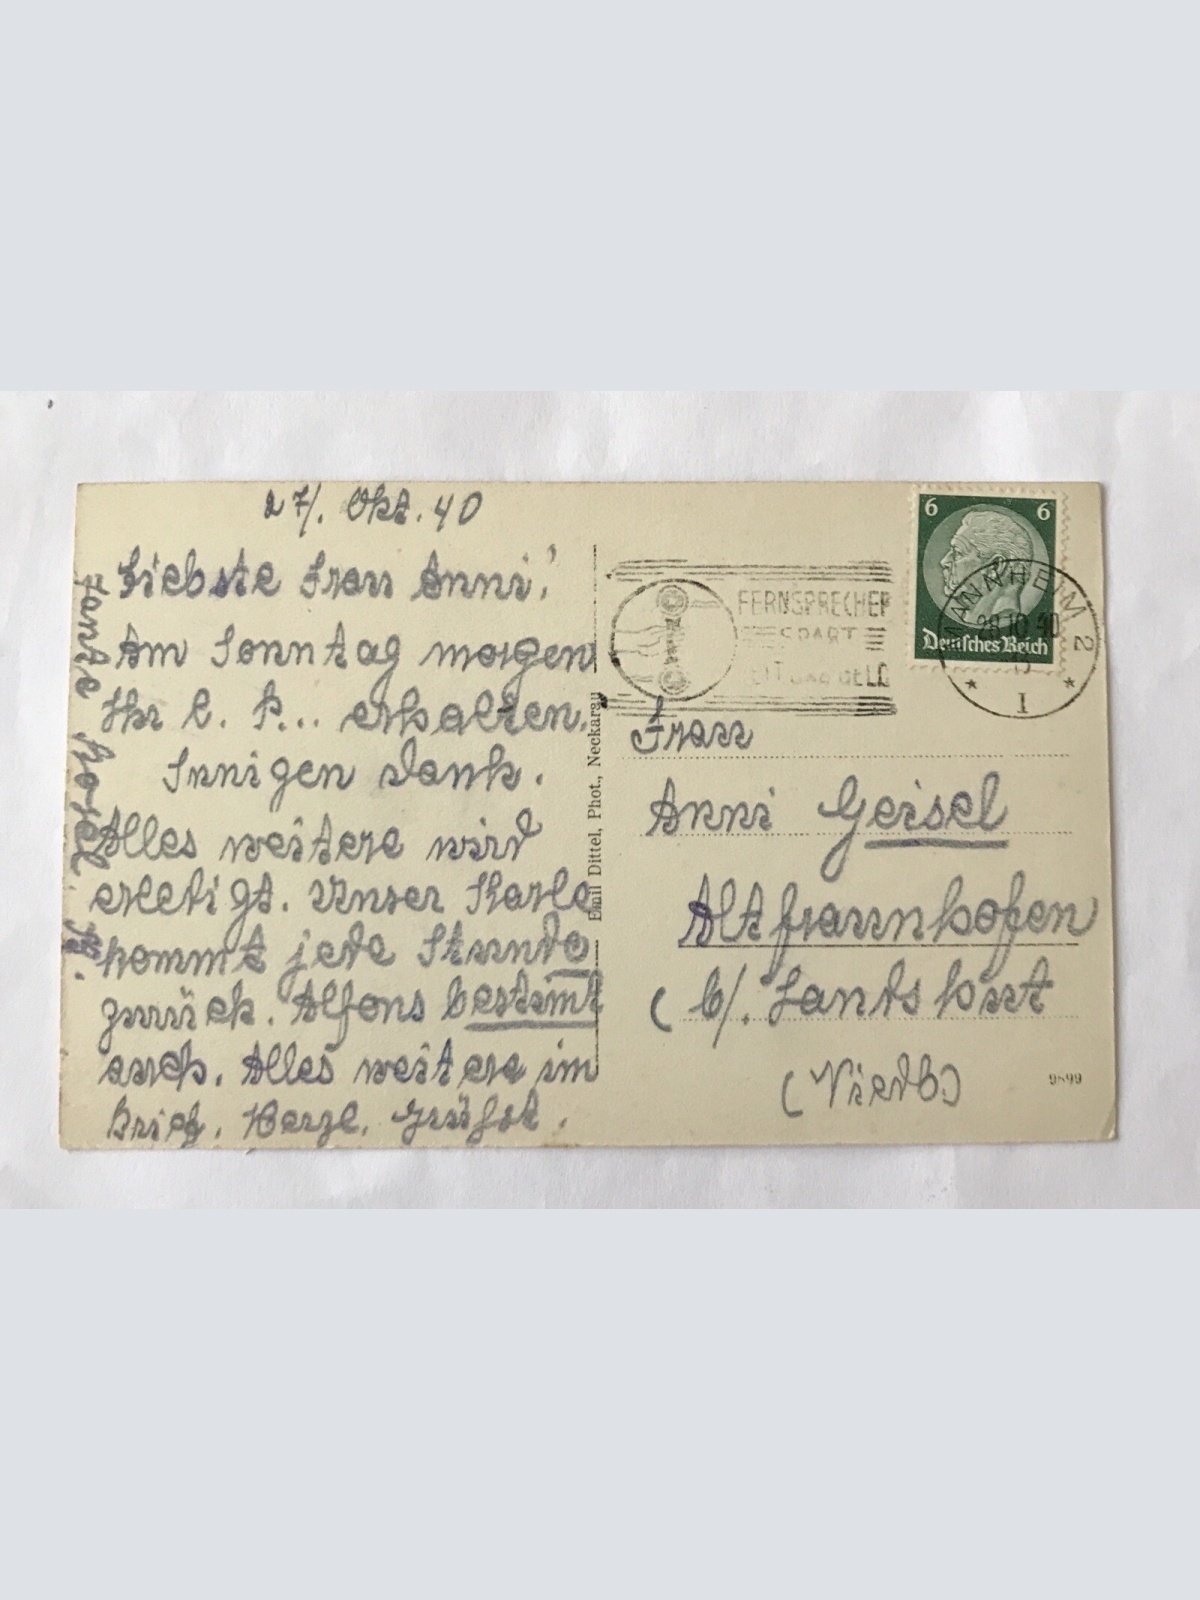 27/. Okt. 40
Liebste Frau Anni!
Am Sonntag morgen
Ihr l. P... erhalten.
Innigen Dank.
Alles weitere wird
erledigt. Unser Karle
kommt jede Stunde
zurück. Alfons bestimt
auch. Alles weitere im
Brief. Herzl. Grüße.
Emil Dittel, Phot., Neckarau
FERNSPRECHER
SPART
ZEIT UND GELD
6 6
Deutsches Reich
MANNHEIM 2
28.10.40
I
Frau
Anni Geisel
Altfraunhofen
( b/. Landshut
(Niedb)
9899